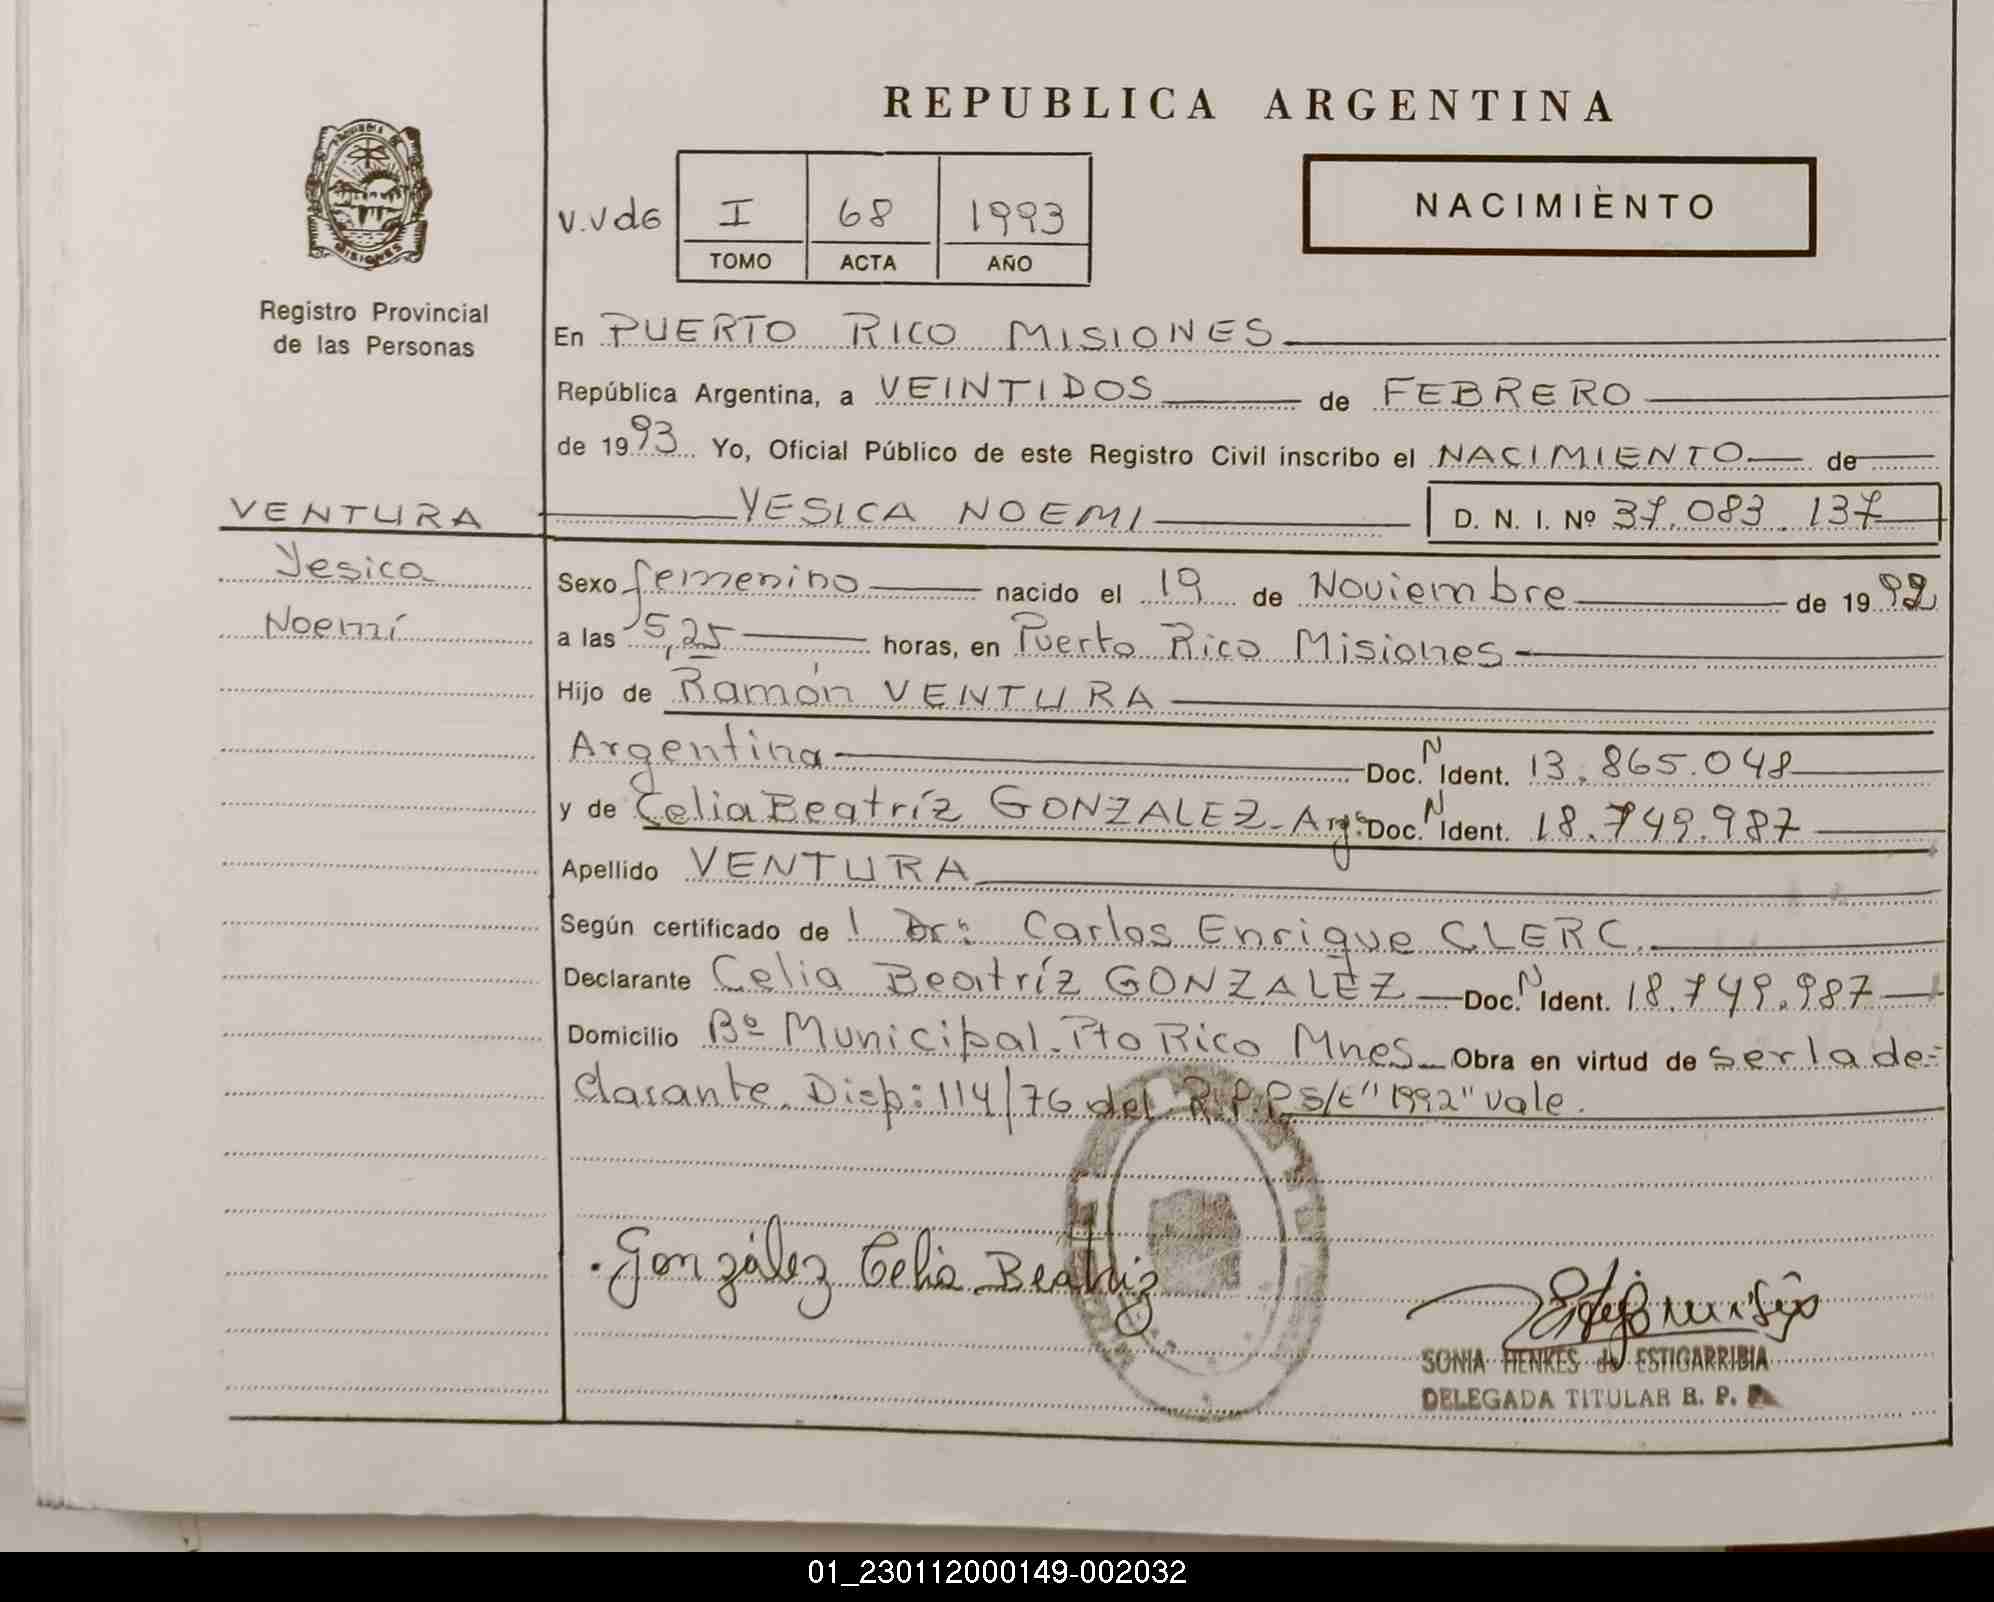 REPUBLICA ARGENTINA
PROVINCIA
MISIONES
Registro Provincial
de las Personas
V.Vd6 I 68 1993
TOMO ACTA AÑO
NACIMIENTO
En PUERTO RICO MISIONES
República Argentina, a VEINTIDOS de FEBRERO
de 1993 Yo, Oficial Público de este Registro Civil inscribo el NACIMIENTO de
VENTURA YESICA NOEMI D. N. I. Nº 37.083.137
Yesica
Noemí
Sexo femenino nacido el 19 de Noviembre de 1992
a las 5,25 horas, en Puerto Rico Misiones
Hijo de Ramón VENTURA
Argentina Doc. N Ident. 13.865.048
y de Celia Beatríz GONZALEZ - Arg. Doc. N Ident. 18.749.987
Apellido VENTURA
Según certificado de l Dr: Carlos Enrique CLERC.
Declarante Celia Beatríz GONZALEZ Doc. N Ident. 18.749.987
Domicilio Bº Municipal - Pto Rico Mnes - Obra en virtud de ser la de=
clarante. Disp: 114/76 del R.P.P. s/e "1992" vale.
González Celia Beatriz
SONIA HENKES de ESTIGARRIBIA
DELEGADA TITULAR R. P. P.
01_230112000149-002032